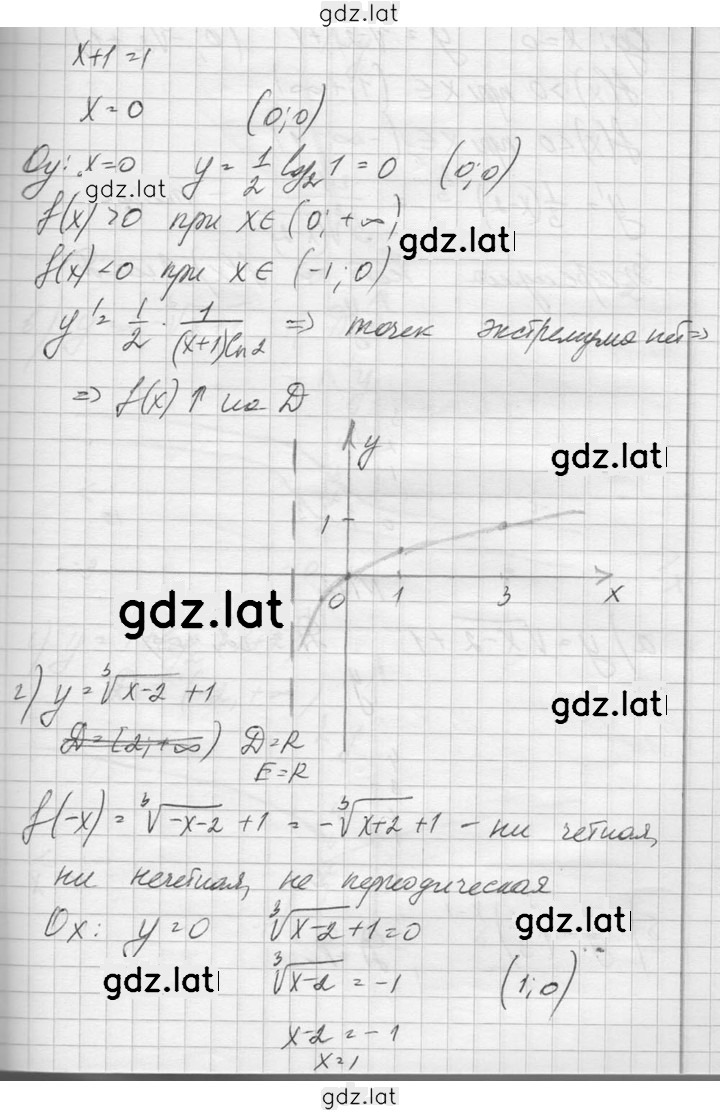 gdz.lat
x+1=1
x=0 (0;0)
Oy: x=0 y = 1/2 log₂1 = 0 (0;0)
gdz.lat
f(x)>0 при x∈(0;+∞)
gdz.lat
f(x)<0 при x∈(-1;0)
y' = 1/2 · 1/((x+1)ln2) => точек экстремума нет =>
=> f(x)↑ на D
y
gdz.lat
1
gdz.lat
0 1 3 x
г) y = ∛(x-2) + 1
gdz.lat
D=(2;+∞) D=R
E=R
f(-x) = ∛(-x-2) + 1 = -∛(x+2) + 1 - ни четная,
ни нечетная, не периодическая
Ox: y=0 ∛(x-2)+1=0
gdz.lat
gdz.lat
∛(x-2) = -1 (1;0)
x-2=-1
x=1
gdz.lat